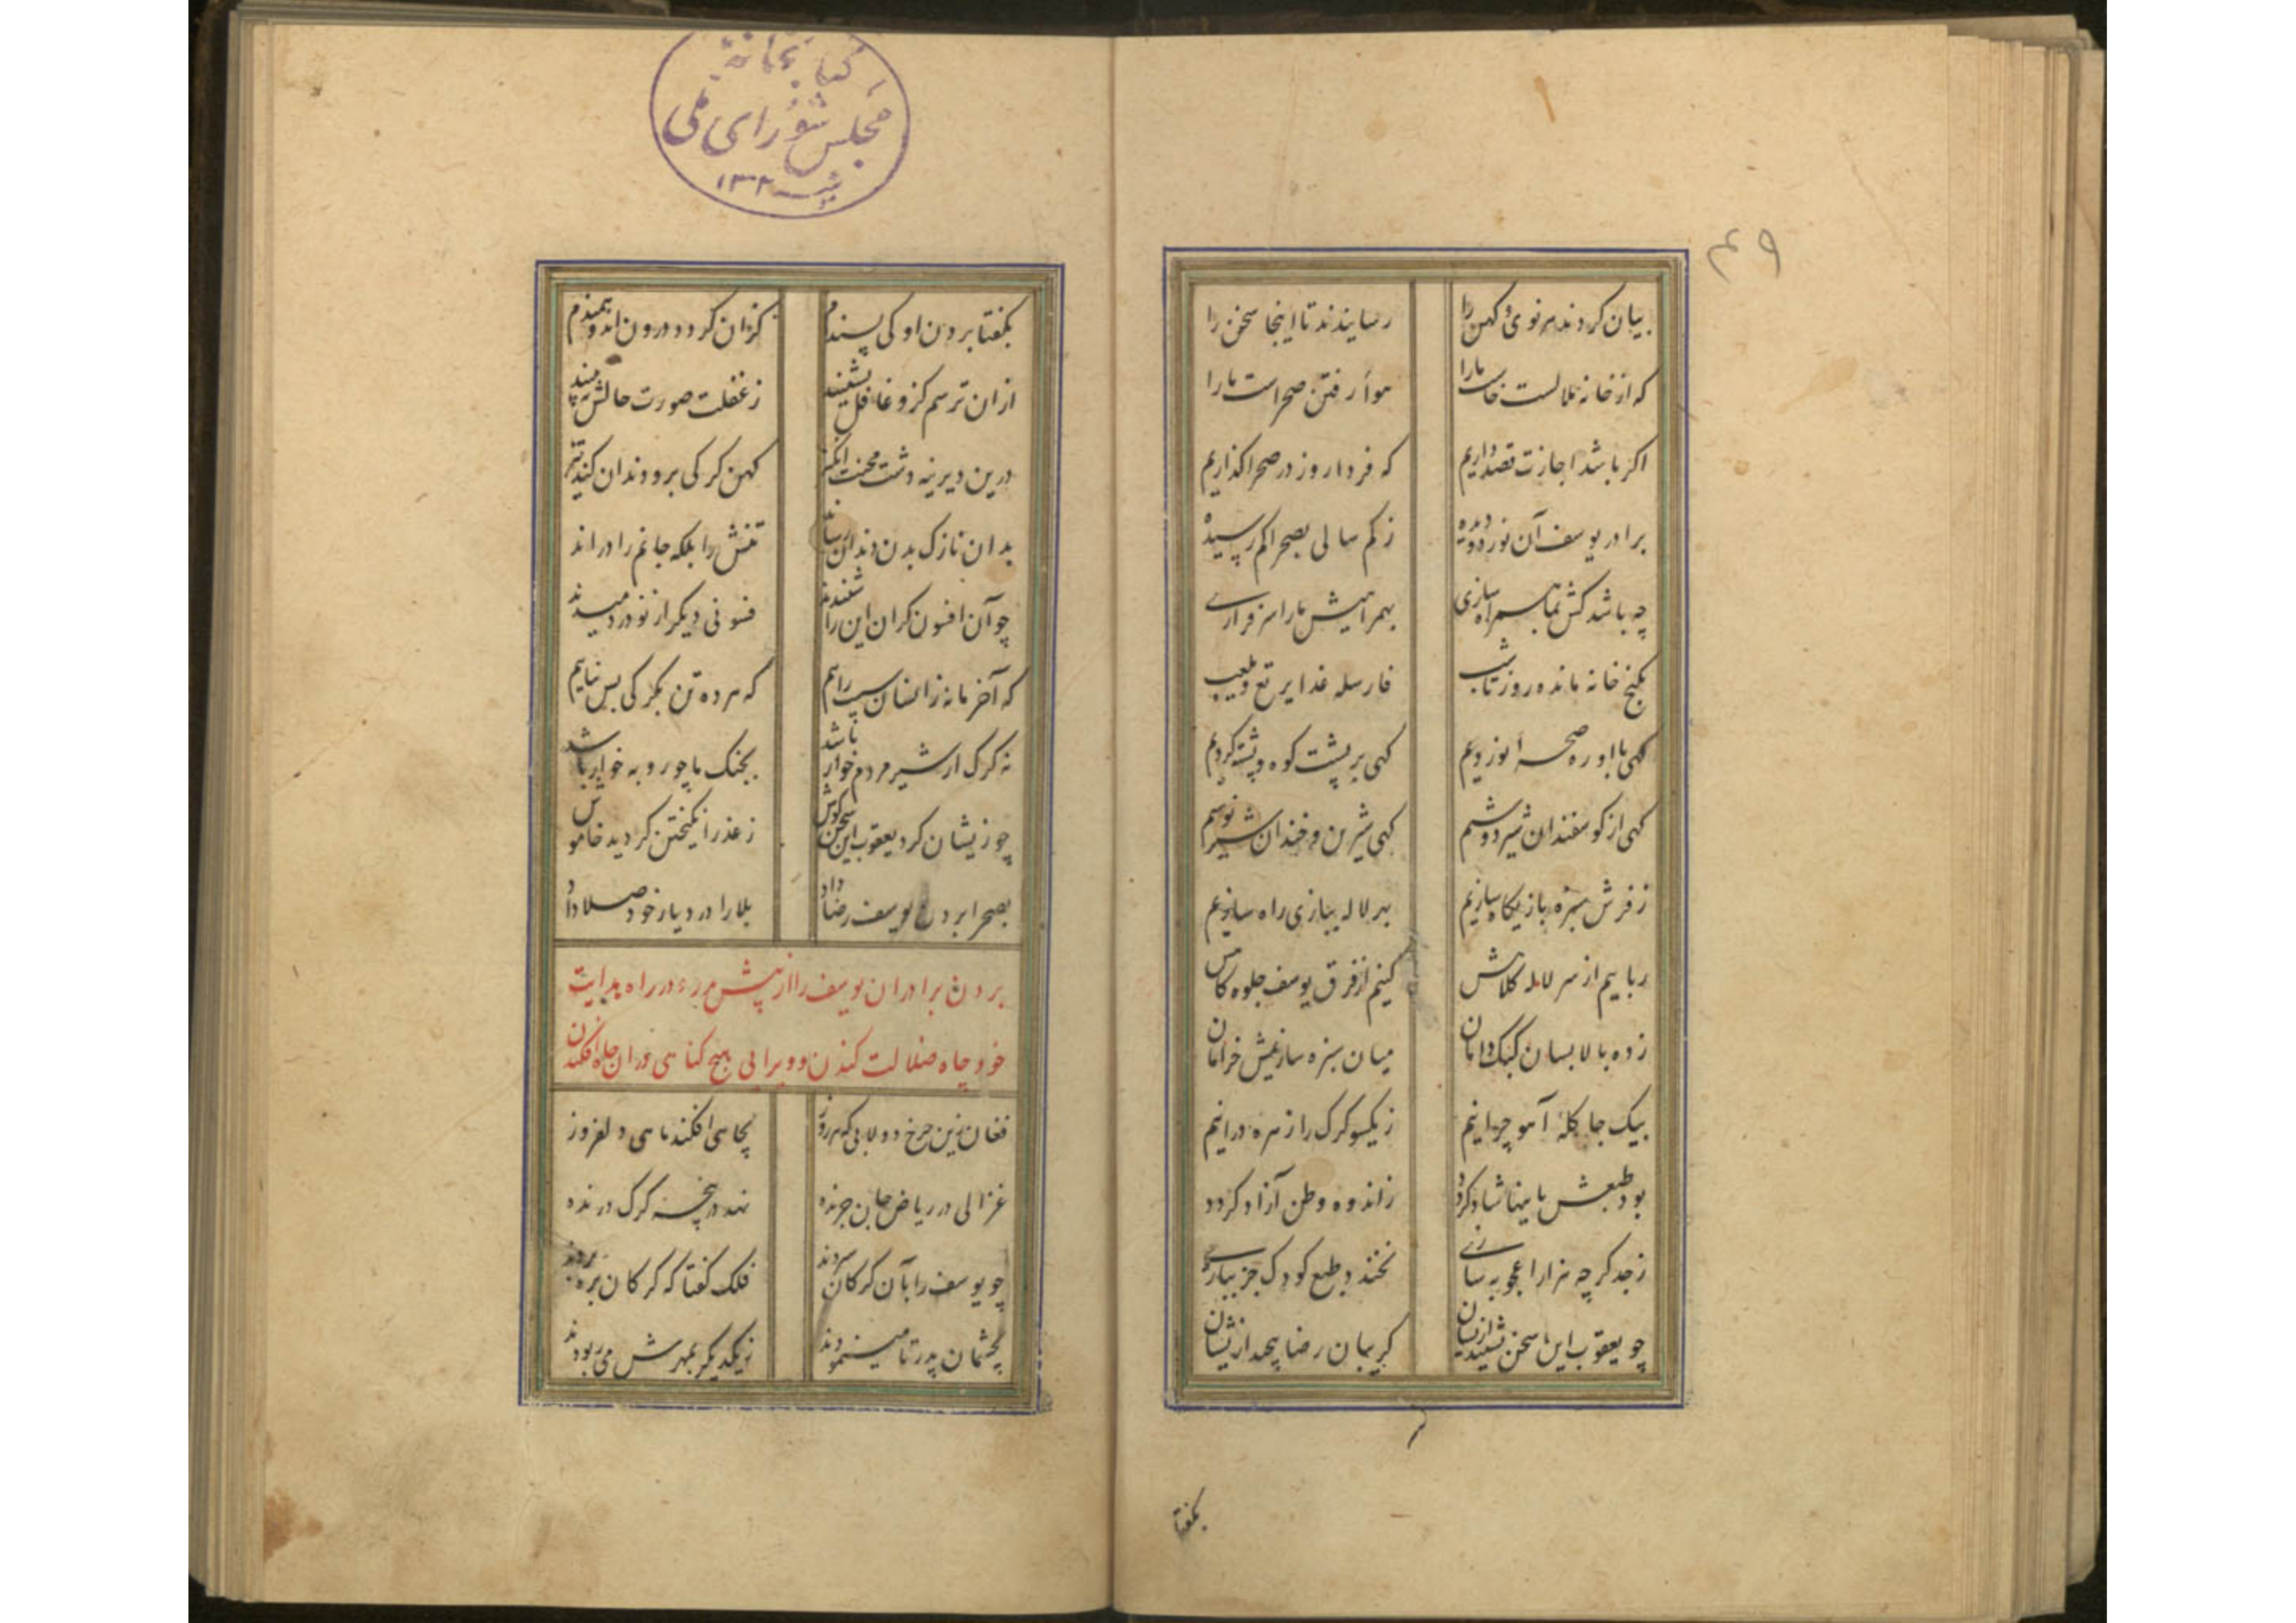 ۴۹
بیان کردند هر نوی و کهن را
رسانیدند تا اینجا سخن را
که از خانه ملالت خاست ما را
هوای رفتن صحراست ما را
اکر باشد اجازت قصد داریم
که فردا روز در صحرا کذاریم
برادر یوسف آن نور دو دیده
ز کم سالی بصحرا کم رسیده
چه باشد کش بما همراه سازی
بهمراهیش ما را سرفرازی
بکنج خانه مانده روز تا شب
فارسله غدا یرتع و یلعب
کهی با او ره صحرا نوردیم
کهی بر پشت کوه و پشته کردیم
کهی از کوسفندان شیر دوشیم
کهی شیرین و خندان شیر نوشیم
ز فرش سبزه بازیکاه سازیم
بهر لاله ببازی راه سازیم
رباییم از سر لاله کلاهش
کنیم از فرق یوسف جلوه کاهش
زده بالا بسان کبک دامان
میان سبزه سازیمش خرامان
بیک جا کلهٔ آهو چرانیم
ز یکسو کرک را زهره درانیم
بود طبعش باینها شاد کردد
ز اندوه وطن آزاد کردد
ز جد کرچه هزار اعجوبه سازی
نخندد طبع کودک جز ببازی
چو یعقوب این سخن بشنید ازیشان
کریبان رضا پیچید ازیشان
بکفتا
کتابخانهٔ
مجلس شورای ملی
۱۳۰۲
بکفتا بردن او کی پسندم
کزان کردد درون اندوهمندم
ازان ترسم کزو غافل نشینید
ز غفلت صورت حالش نبینید
درین دیرینه دشت محنت انکیز
کهن کرکی برو دندان کند تیز
بدان نازک بدن دندان رساند
تنش را بلکه جانم را دراند
چو آن افسون کران این را شنیدند
فسونی دیکر از نو در دمیدند
که آخر ما نه زانسان سست رایم
که هر ده تن بکرکی بس نیایم
نه کرک ار شیر مردم خوار باشد
بجنک ما چو روبه خوار باشد
چو زیشان کرد یعقوب این سخن کوش
ز عذر انکیختن کردید خاموش
بصحرا بردن یوسف رضا داد
بلا را در دیار خود صلا داد
بردن برادران یوسف را از پیش پدر و در راه بدایت
خود چاه ضلالت کندن و ویرا بی هیچ کناهی دران چاه افکندن
فغان زین چرخ دولابی که هر روز
بچاهی افکند ماهی دلفروز
غزالی در ریاض جان چرنده
نهد در پنجهٔ کرک درنده
چو یوسف را بآن کرکان سپردند
فلک کفتا که کرکان بره بردند
بچشمان پدر تا می‌نمودند
ز یکدیکر بمهرش می ربودند